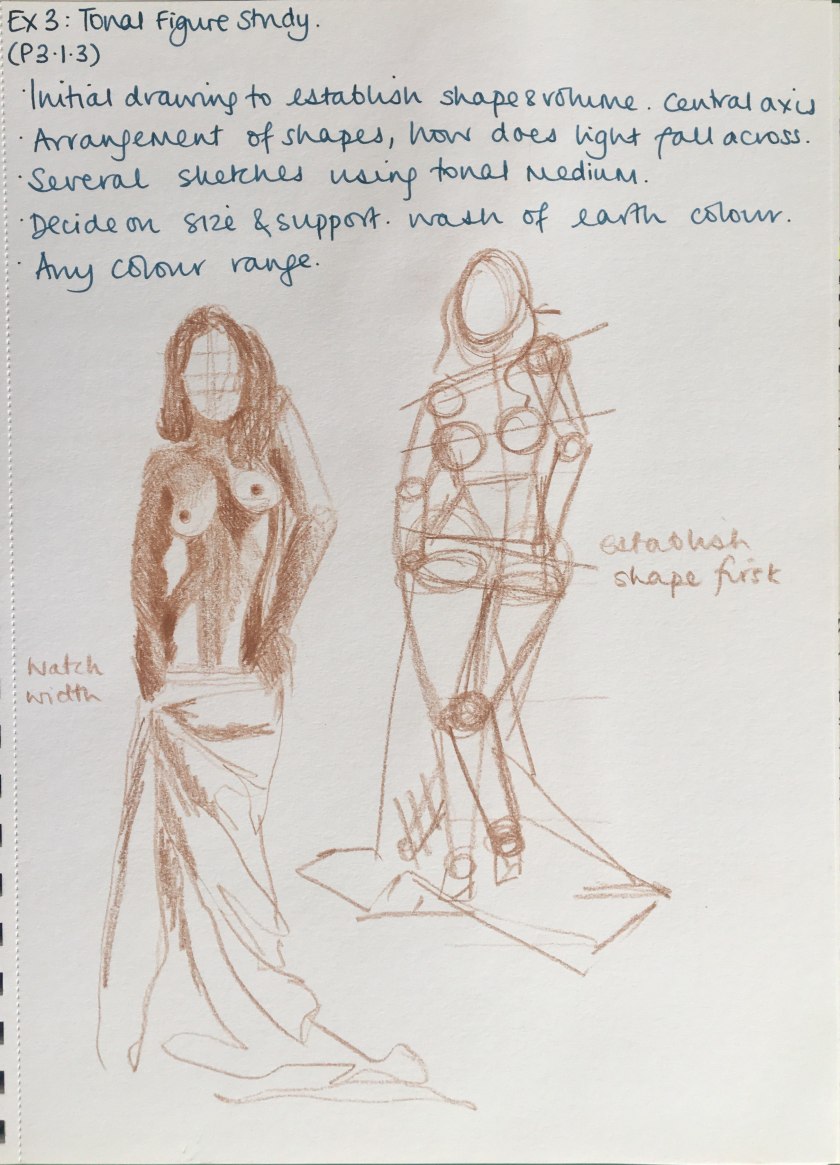 Ex 3: Tonal Figure Study.
(P3.1.3)
·Initial drawing to establish shape & volume. central axis
·Arrangement of shapes, how does light fall across.
·Several sketches using tonal medium.
·Decide on size & support. wash of earth colour.
·Any colour range.
establish
shape first
watch
width